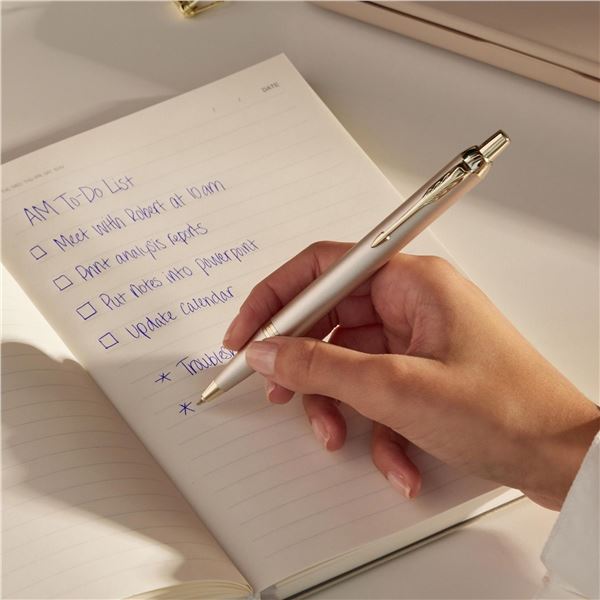 DATE
AM To-Do List
Meet with Robert at 10am
Print analysis reports
Put notes into powerpoint
Update Calendar
* Troublesh
*